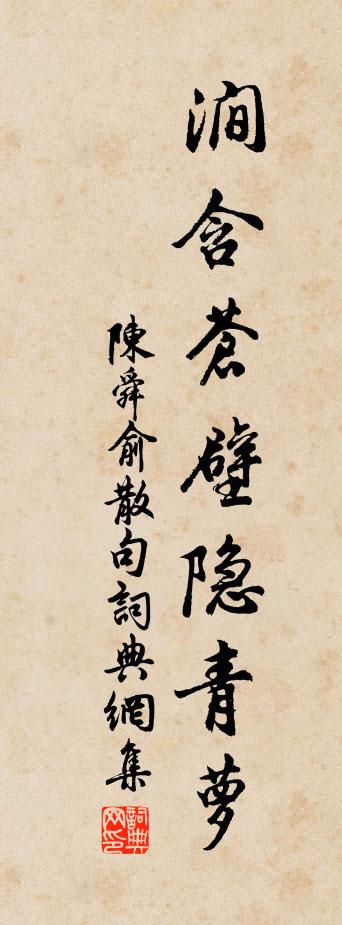 澗含蒼壁隐青萝
陳舜俞散句詞典網集
詞典网印